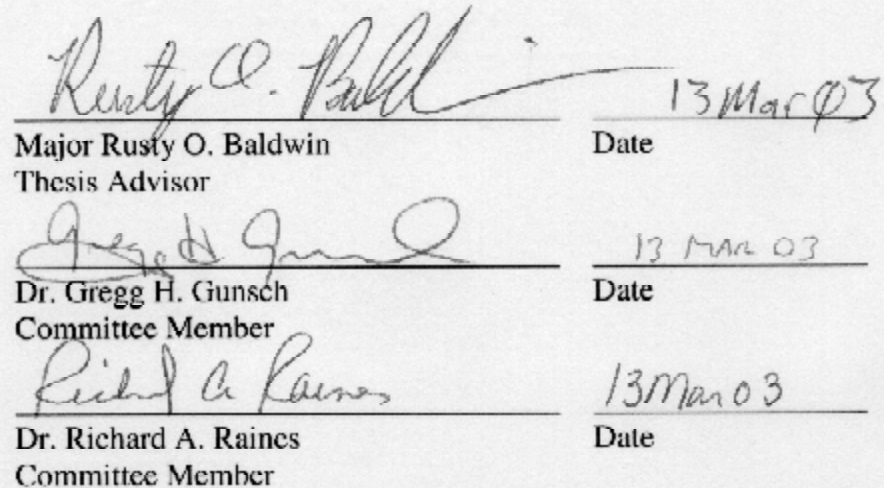 Rusty O. Baldwin 13 Mar 03
Major Rusty O. Baldwin Date
Thesis Advisor
Gregg H Gunsch 13 MAR 03
Dr. Gregg H. Gunsch Date
Committee Member
Richard A Raines 13 Mar 03
Dr. Richard A. Raines Date
Committee Member